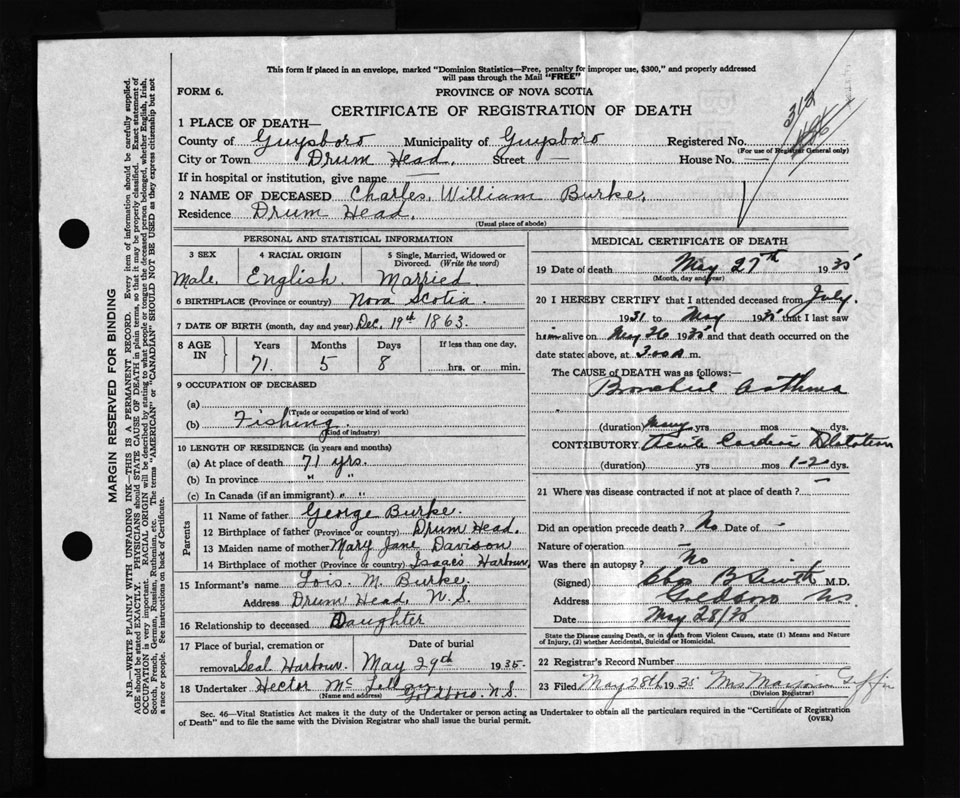 This form if placed in an envelope, marked "Dominion Statistics—Free, penalty for improper use, $300," and properly addressed
will pass through the Mail "FREE"
FORM 6.
PROVINCE OF NOVA SCOTIA
CERTIFICATE OF REGISTRATION OF DEATH
312
1 PLACE OF DEATH—
County of Guysboro Municipality of Guysboro Registered No.
(For use of Registrar General only)
City or Town Drum Head. Street — House No. —
If in hospital or institution, give name —
2 NAME OF DECEASED Charles William Burke.
Residence Drum Head.
(Usual place of abode)
PERSONAL AND STATISTICAL INFORMATION
3 SEX 4 RACIAL ORIGIN 5 Single, Married, Widowed or
Divorced. (Write the word)
Male. English. Married.
6 BIRTHPLACE (Province or country) Nova Scotia.
7 DATE OF BIRTH (month, day and year) Dec. 19th 1863.
8 AGE IN Years Months Days If less than one day,
71. 5 8 hrs. or min.
9 OCCUPATION OF DECEASED
(a)
(Trade or occupation or kind of work)
(b) Fishing.
(Kind of industry)
10 LENGTH OF RESIDENCE (in years and months)
(a) At place of death 71 yrs.
(b) In province " "
(c) In Canada (if an immigrant) " "
Parents
11 Name of father George Burke.
12 Birthplace of father (Province or country) Drum Head.
13 Maiden name of mother Mary Jane Davison
14 Birthplace of mother (Province or country) Isaacs Harbour,
15 Informant's name Lois M. Burke.
Address Drum Head, N.S.
16 Relationship to deceased Daughter
17 Place of burial, cremation or Date of burial
removal Seal Harbour. May 29th 1935.
18 Undertaker Hector Mc Goldboro. N.S.
(Name and address)
MEDICAL CERTIFICATE OF DEATH
19 Date of death May 27th 1935
(Month, day and year)
20 I HEREBY CERTIFY that I attended deceased from July.
1931 to May 1935 that I last saw
him alive on May 26 1935 and that death occurred on the
date stated above, at 3.00 A m.
The CAUSE of DEATH was as follows:—
Bronchial Asthma
(duration) Many yrs mos. dys.
CONTRIBUTORY Acute Cardiac Dilatation
(duration) yrs mos 1-2 dys.
21 Where was disease contracted if not at place of death? —
Did an operation precede death? No Date of -
Nature of operation —
Was there an autopsy? No
(Signed) M.D.
Address Goldboro NS
Date May 28/35
State the Disease causing Death, or in death from Violent Causes, state (1) Means and Nature
of Injury, (2) whether Accidental, Suicidal or Homicidal.
22 Registrar's Record Number
23 Filed May 28th 1935 Mrs Giffin
(Division Registrar)
Sec. 46—Vital Statistics Act makes it the duty of the Undertaker or person acting as Undertaker to obtain all the particulars required in the "Certificate of Registration
of Death" and to file the same with the Division Registrar who shall issue the burial permit.
(OVER)
MARGIN RESERVED FOR BINDING
N.B.—WRITE PLAINLY WITH UNFADING INK—THIS IS A PERMANENT RECORD. Every item of information should be carefully supplied.
AGE should be stated EXACTLY. PHYSICIANS should STATE CAUSE OF DEATH in plain terms, so that it may be properly classified. Exact statement of
OCCUPATION is very important. RACIAL ORIGIN will be described by stating to what people or tongue the deceased person belonged, whether English, Irish,
Scotch, French, German, Russian, Ruthenian, etc. The terms "AMERICAN" or "CANADIAN" SHOULD NOT BE USED as they express citizenship but not
a race or people. See instructions on back of Certificate.